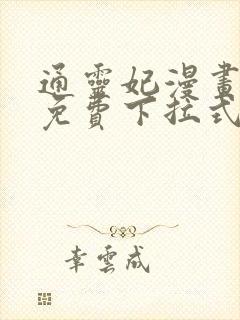 通靈妃漫畫
免費下拉式
幸雲成